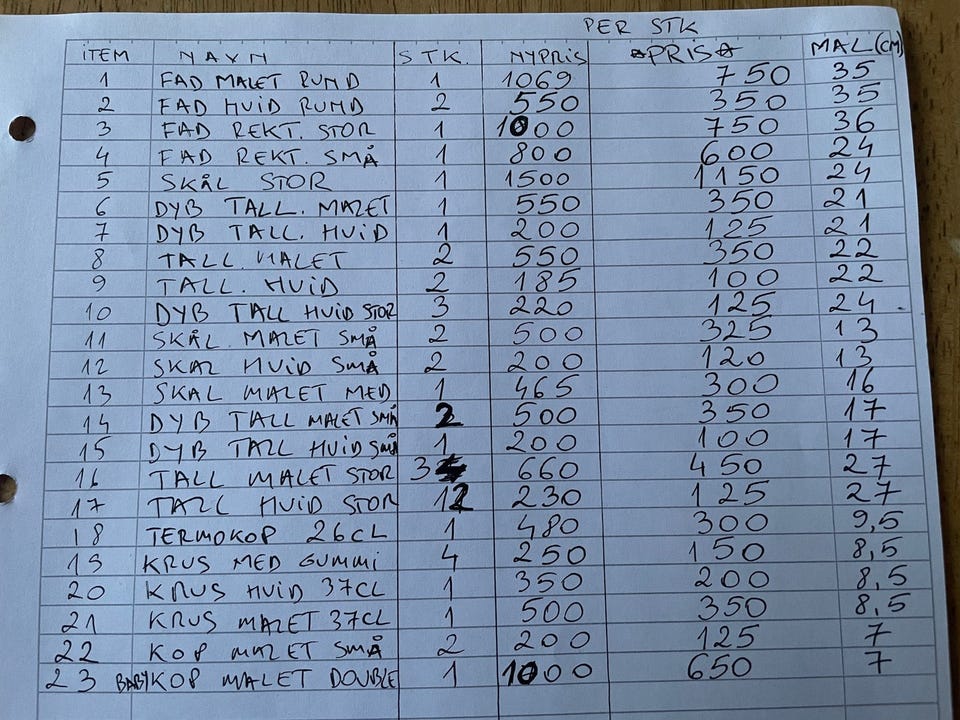 PER STK
ITEM NAVN STK. NYPRIS ☆PRIS☆ MAL (CM)
1 FAD MALET RUND 1 1069 750 35
2 FAD HVID RUND 2 550 350 35
3 FAD REKT. STOR 1 1000 750 36
4 FAD REKT. SMÅ 1 800 600 24
5 SKÅL STOR 1 1500 1150 24
6 DYB TALL. MALET 1 550 350 21
7 DYB TALL. HVID 1 200 125 21
8 TALL. MALET 2 550 350 22
9 TALL. HVID 2 185 100 22
10 DYB TALL HVID STOR 3 220 125 24
11 SKÅL MALET SMÅ 2 500 325 13
12 SKAL HVID SMÅ 2 200 120 13
13 SKAL MALET MED 1 465 300 16
14 DYB TALL MALET SMÅ 2 500 350 17
15 DYB TALL HVID SMÅ 1 200 100 17
16 TALL MALET STOR 3 660 450 27
17 TALL HVID STOR 12 230 125 27
18 TERMOKOP 26CL 1 480 300 9,5
19 KRUS MED GUMMI 4 250 150 8,5
20 KRUS HVID 37CL 1 350 200 8,5
21 KRUS MALET 37CL 1 500 350 8,5
22 KOP MALET SMÅ 2 200 125 7
23 BABYKOP MALET DOUBLE 1 1000 650 7